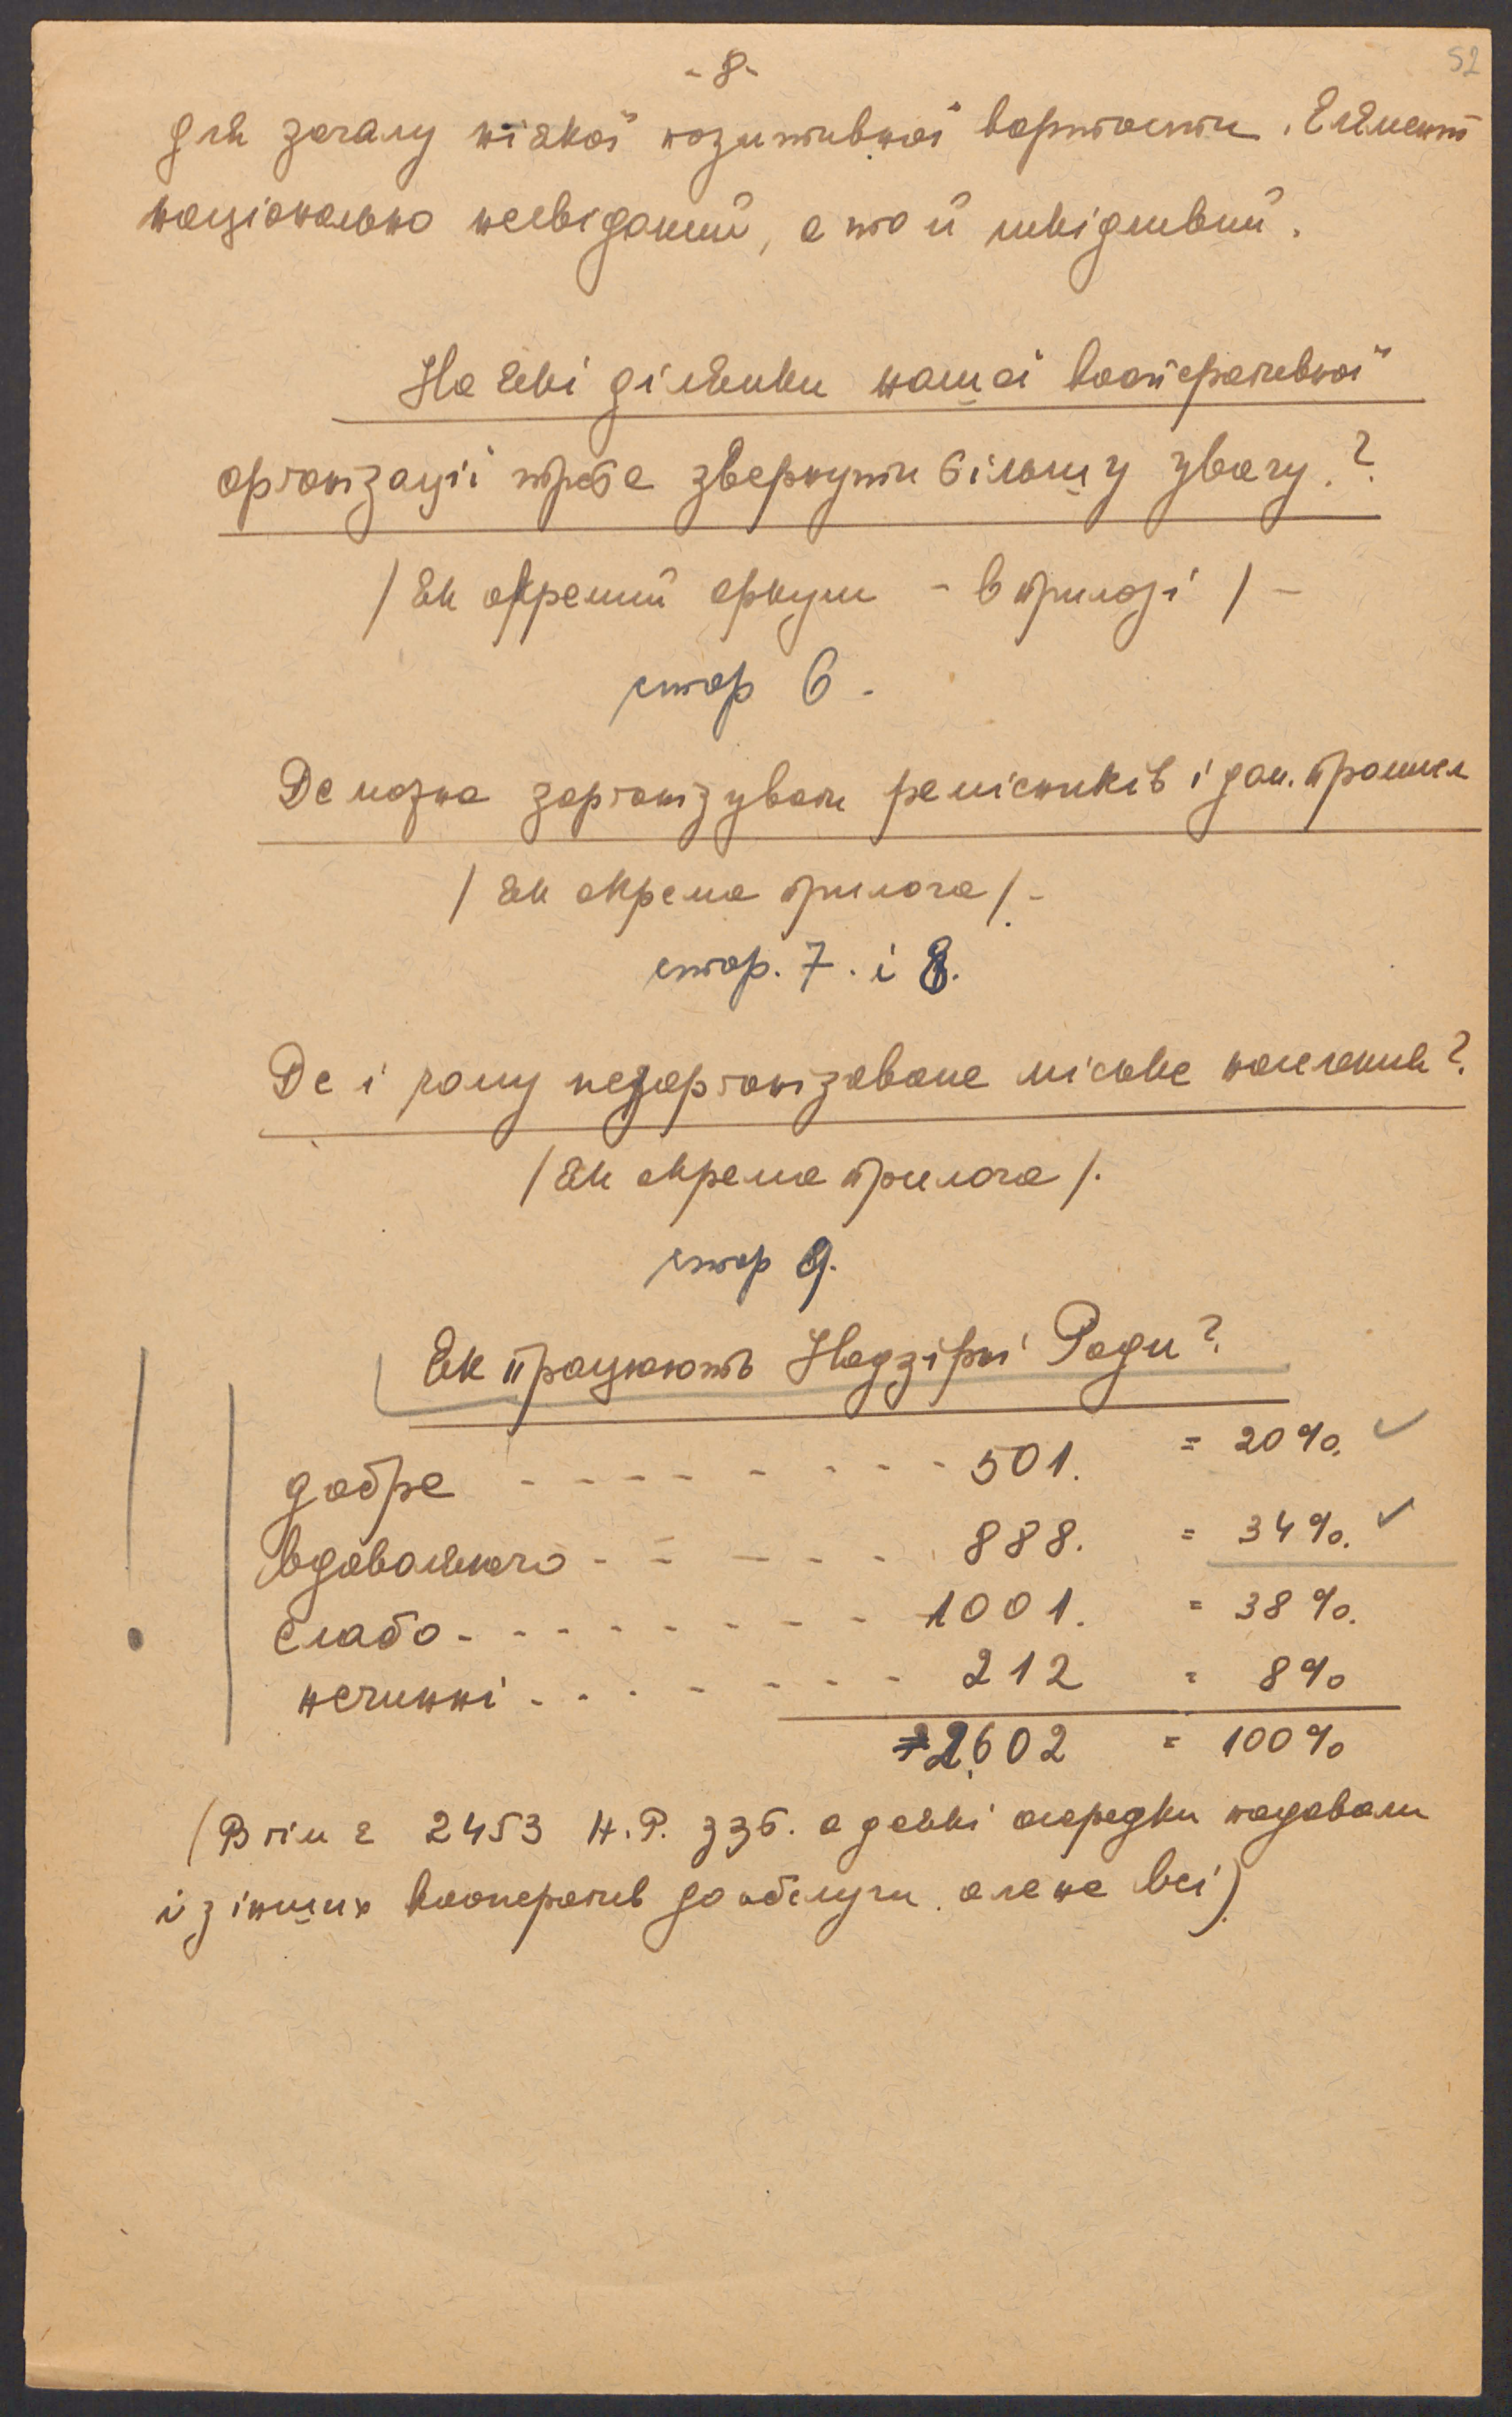 52
- 8 -
для загалу ніякої позитивної вартости. Елємент
національно несвідомий, а то й шкідливий.
На які ділянки нашої кооперативної
орґанізації треба звернути більшу увагу.?
/ Як окремий аркуш - в прилозі / -
стор 6.
Де можна зорґанізувати ремісників і дом. промисл
/ Як окрема прилога /. -
стор. 7. і 8.
Де і чому незорґанізоване міське населення?
/ Як окрема прилога /.
стор 9.
Як працюють Надзірні Ради?
добре - - - - - - - - - 501. = 20%.
вдоволяючо - - - - - - 888. = 34%.
слабо - - - - - - - - - 1001. = 38%.
нечинні - - - - - - - - 212 = 8%
2602 = 100%
(Втім є 2453 Н.Р. а деякі осередки подавали
і з інших кооператив до обслуги але не всі)